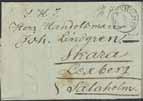 S. H. T.
Herr Handelsman
Joh. Lindgren
Skara
Lexberg
Salaholm